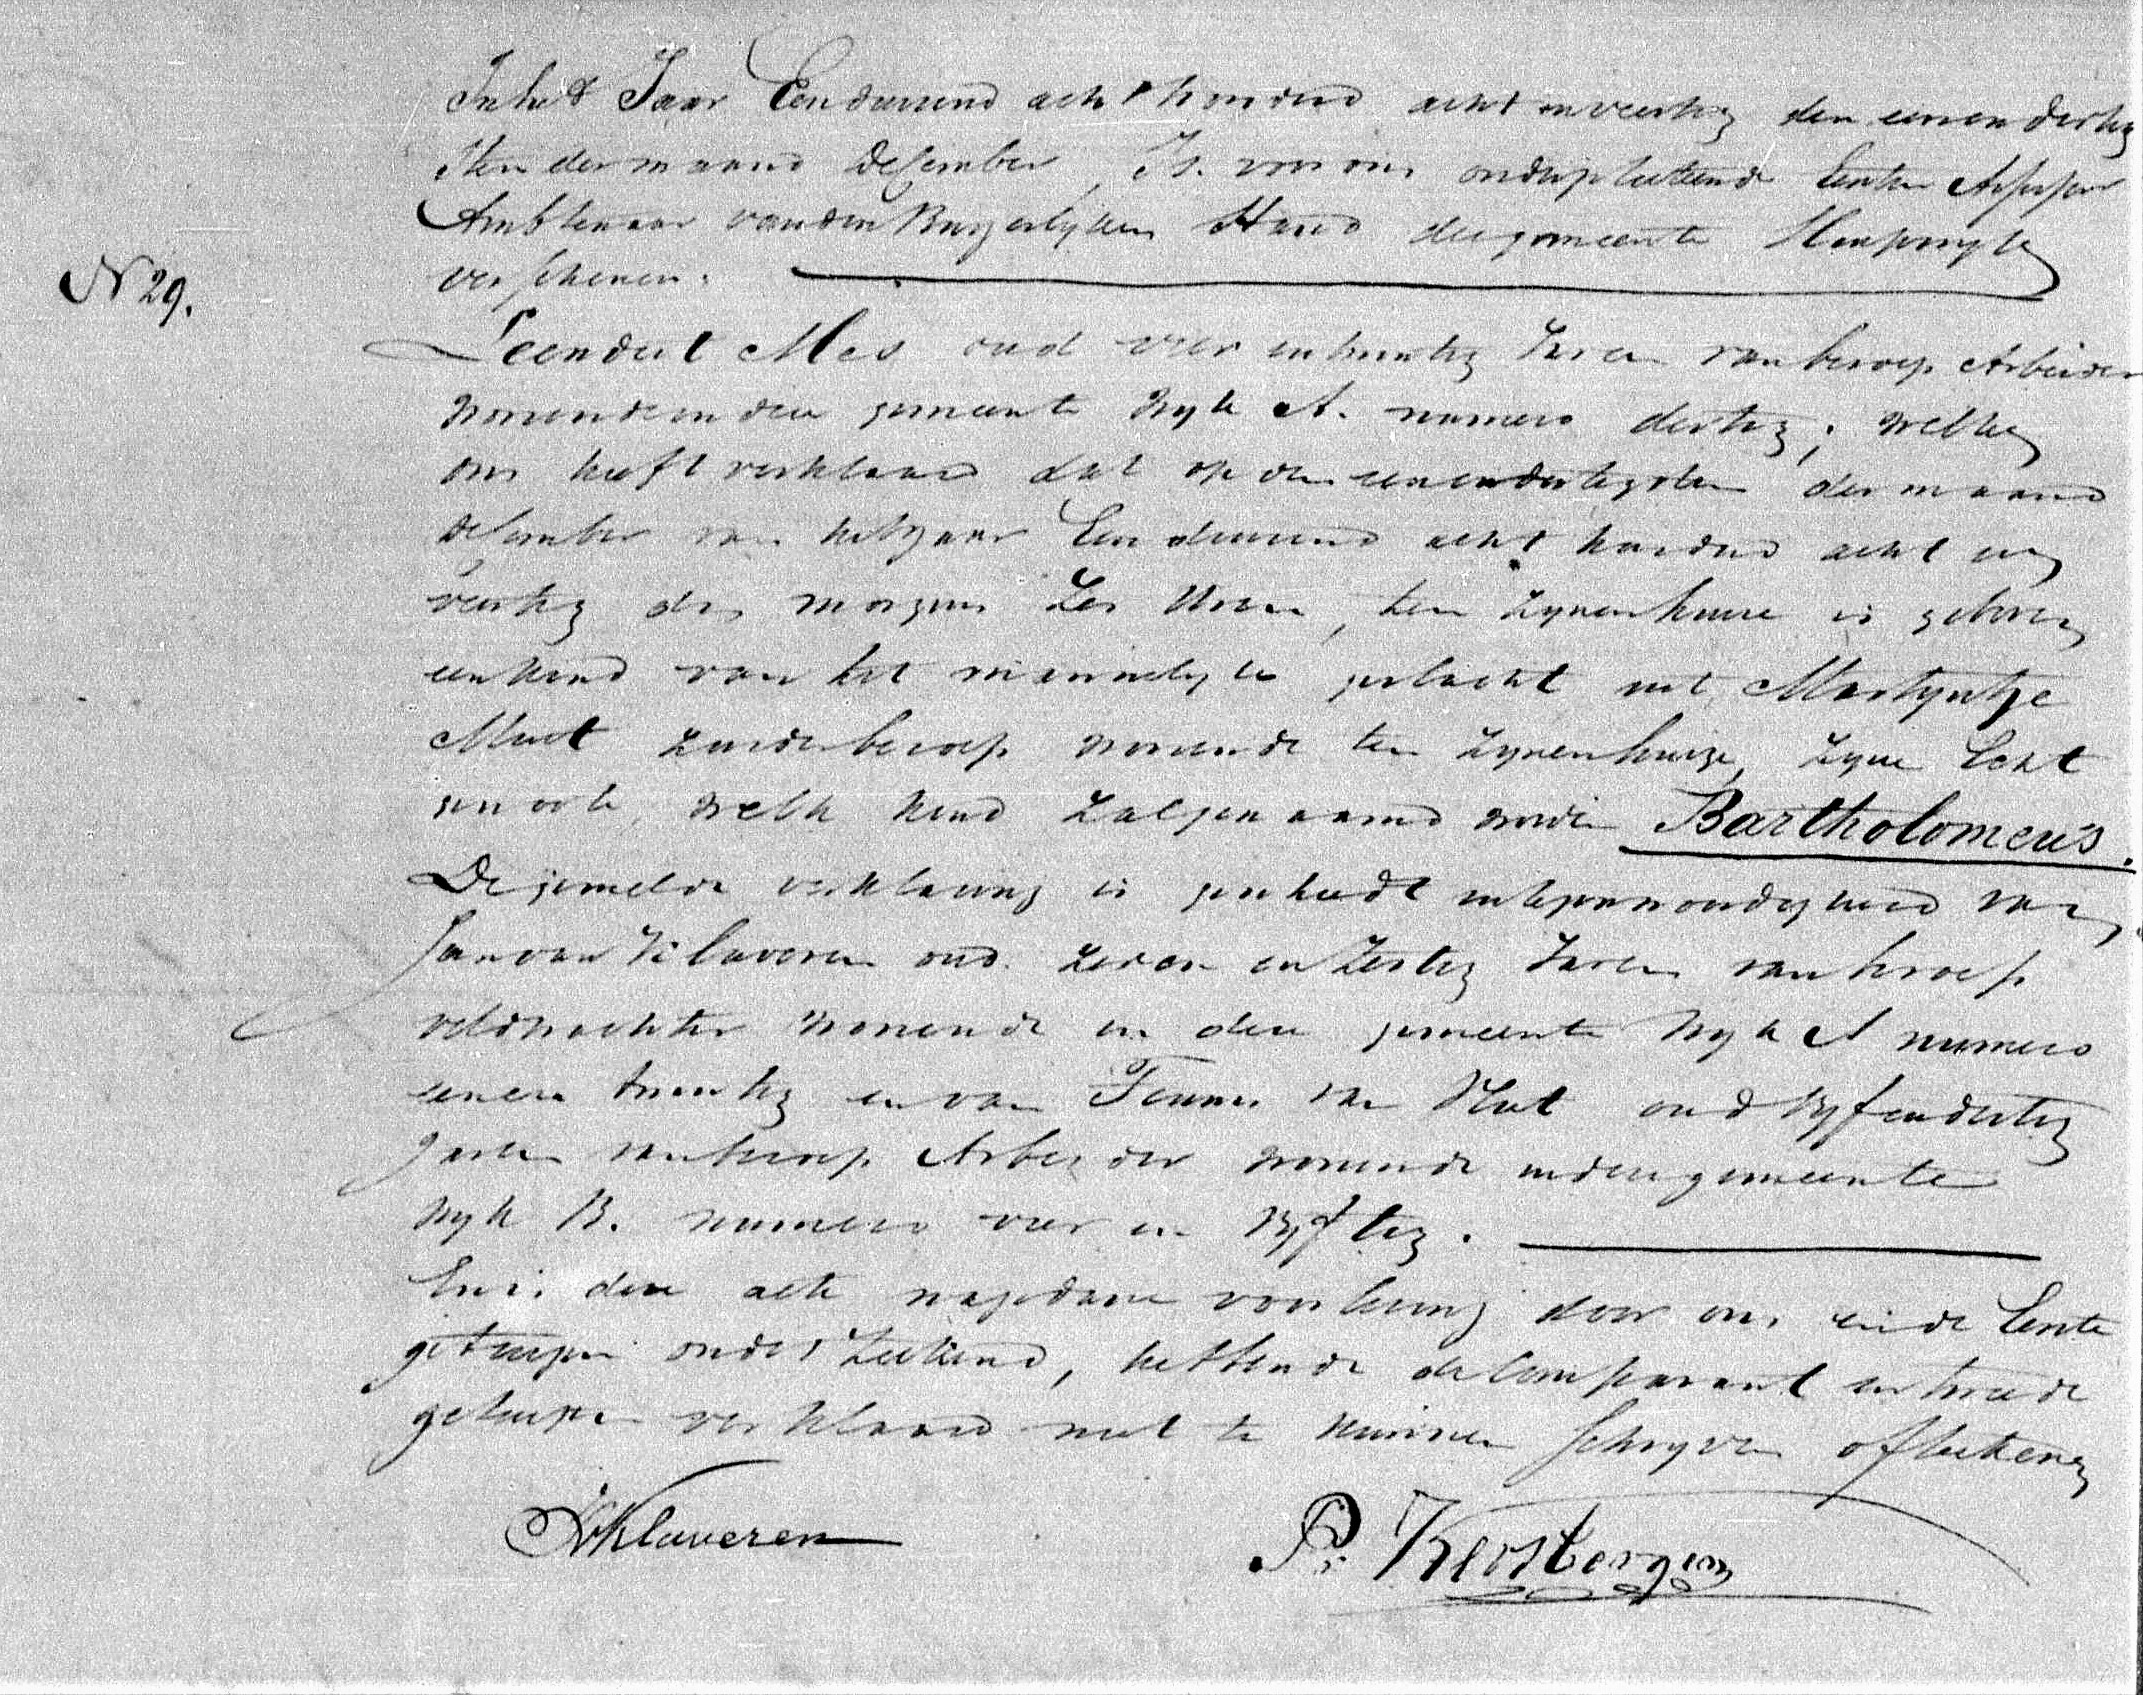 In het Jaar Eenduizend acht honderd acht en veertig den eenendertig
sten der maand December, Is voor ons onderget​eekende Eerste Assessor
Ambtenaar van den Burgerlyken Stand der gemeente
verschenen.
N 29.
Leendert Mes oud vier en twintig Jaren van beroep Arbeider
wonende in deze gemeente Wyk A. numero dertig; welke
ons heeft verklaard dat op den eenendertigsten der maand
December van het Jaar Een duizend acht honderd acht en
veertig des morgens Zes Uren, ten zynen huize is geboren
een kind van het mannelyke geslacht uit Martyntje
zonder beroep wonende ten zynen huize, zyne Echt
genoote, welk kind zal genaamd worden Bartholomeus.
De gemelde verklaring is geschiedt in tegenwoordigheid van
Jan van Klaveren oud zeven en zestig Jaren van beroep
veldwachter wonende in deze gemeente Wyk A numero
eenen twintig en van Teunis van oud vyfendertig
Jaren van beroep Arbeider wonende in deze gemeente
Wyk B. numero vier en vyftig.
En is deze acte na gedane voorlezing door ons en de Eerste
getuigen onderteekend, hebbende de Comparant en tweede
getuigen verklaard niet te kunnen schryven of teekenen
JvKlaveren
P. Kersbergen